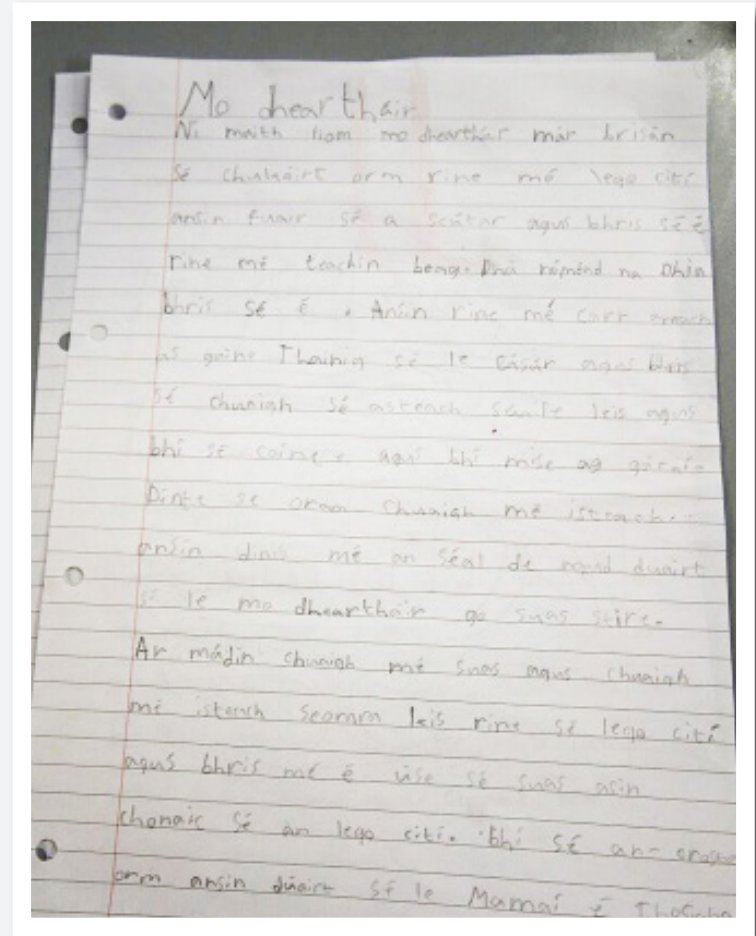 Mo dhearthair
Ní maith liom mo dhearthár már brisán
sé orm rine mé lego cití
ansin fuair sé a scútar agus bhris sé é
rine mé teachin beag. na
bhris sé é. Ansin rine mé carr
as Thainig sé le cásúr agus bhris
sé chuaigh sé asteach leis agus
bhí sé agus bhí mise ag
sé oram chuaigh mé isteach.
ansin dinis mé an séal de duairt
sé le mo dhearthair go suas stire.
Ar mádin chuaigh mé suas agus chuaigh
mé isteach seomra leis rine sé lego cití
agus bhris mé é úise sé suas asin
chonaic sé an lego cití. bhí sé an-
orm ansin dúairt sé le Mamaí é